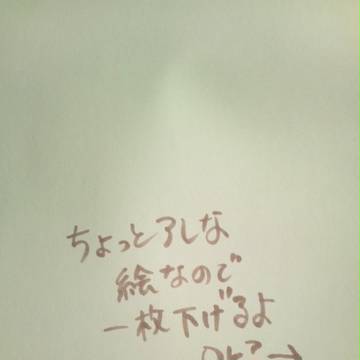 ちょっとアレな
絵なので
一枚下げるよ
OK?→